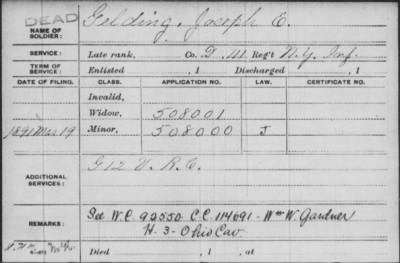 DEAD
NAME OF SOLDIER: Gelding, Joseph E.
SERVICE: Late rank, Co. D, 111 Reg't N.Y. Inf.
TERM OF SERVICE: Enlisted , 1 Discharged , 1
DATE OF FILING. CLASS. APPLICATION NO. LAW. CERTIFICATE NO.
Invalid,
Widow, 508001
1891 Mar 19 Minor, 508000 J
ADDITIONAL SERVICES: G 12 V. R. C.
REMARKS: See W.C. 92550 C.C. 114691 - Wm W. Gardner
H - 3 - Ohio Cav
Died , 1 , at